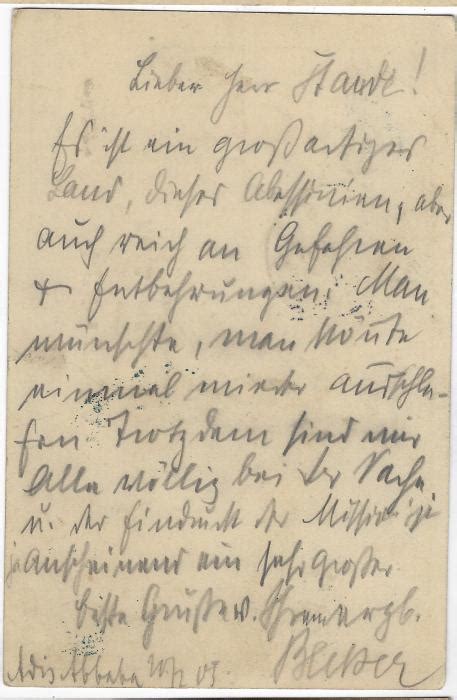 Lieber Herr Staude!
Es ist ein großartiges
Land, dieses Abessinien, aber
auch reich an Gefahren
& Entbehrungen. Man
wünschte, man könnte
einmal wieder ausschla-
fen Trotzdem sind wir
Alle völlig bei der Sache
u. der Eindruck der Mission ist
ja anscheinend ein sehr großer
beste Grüße v.
Adis Abbeba 05.